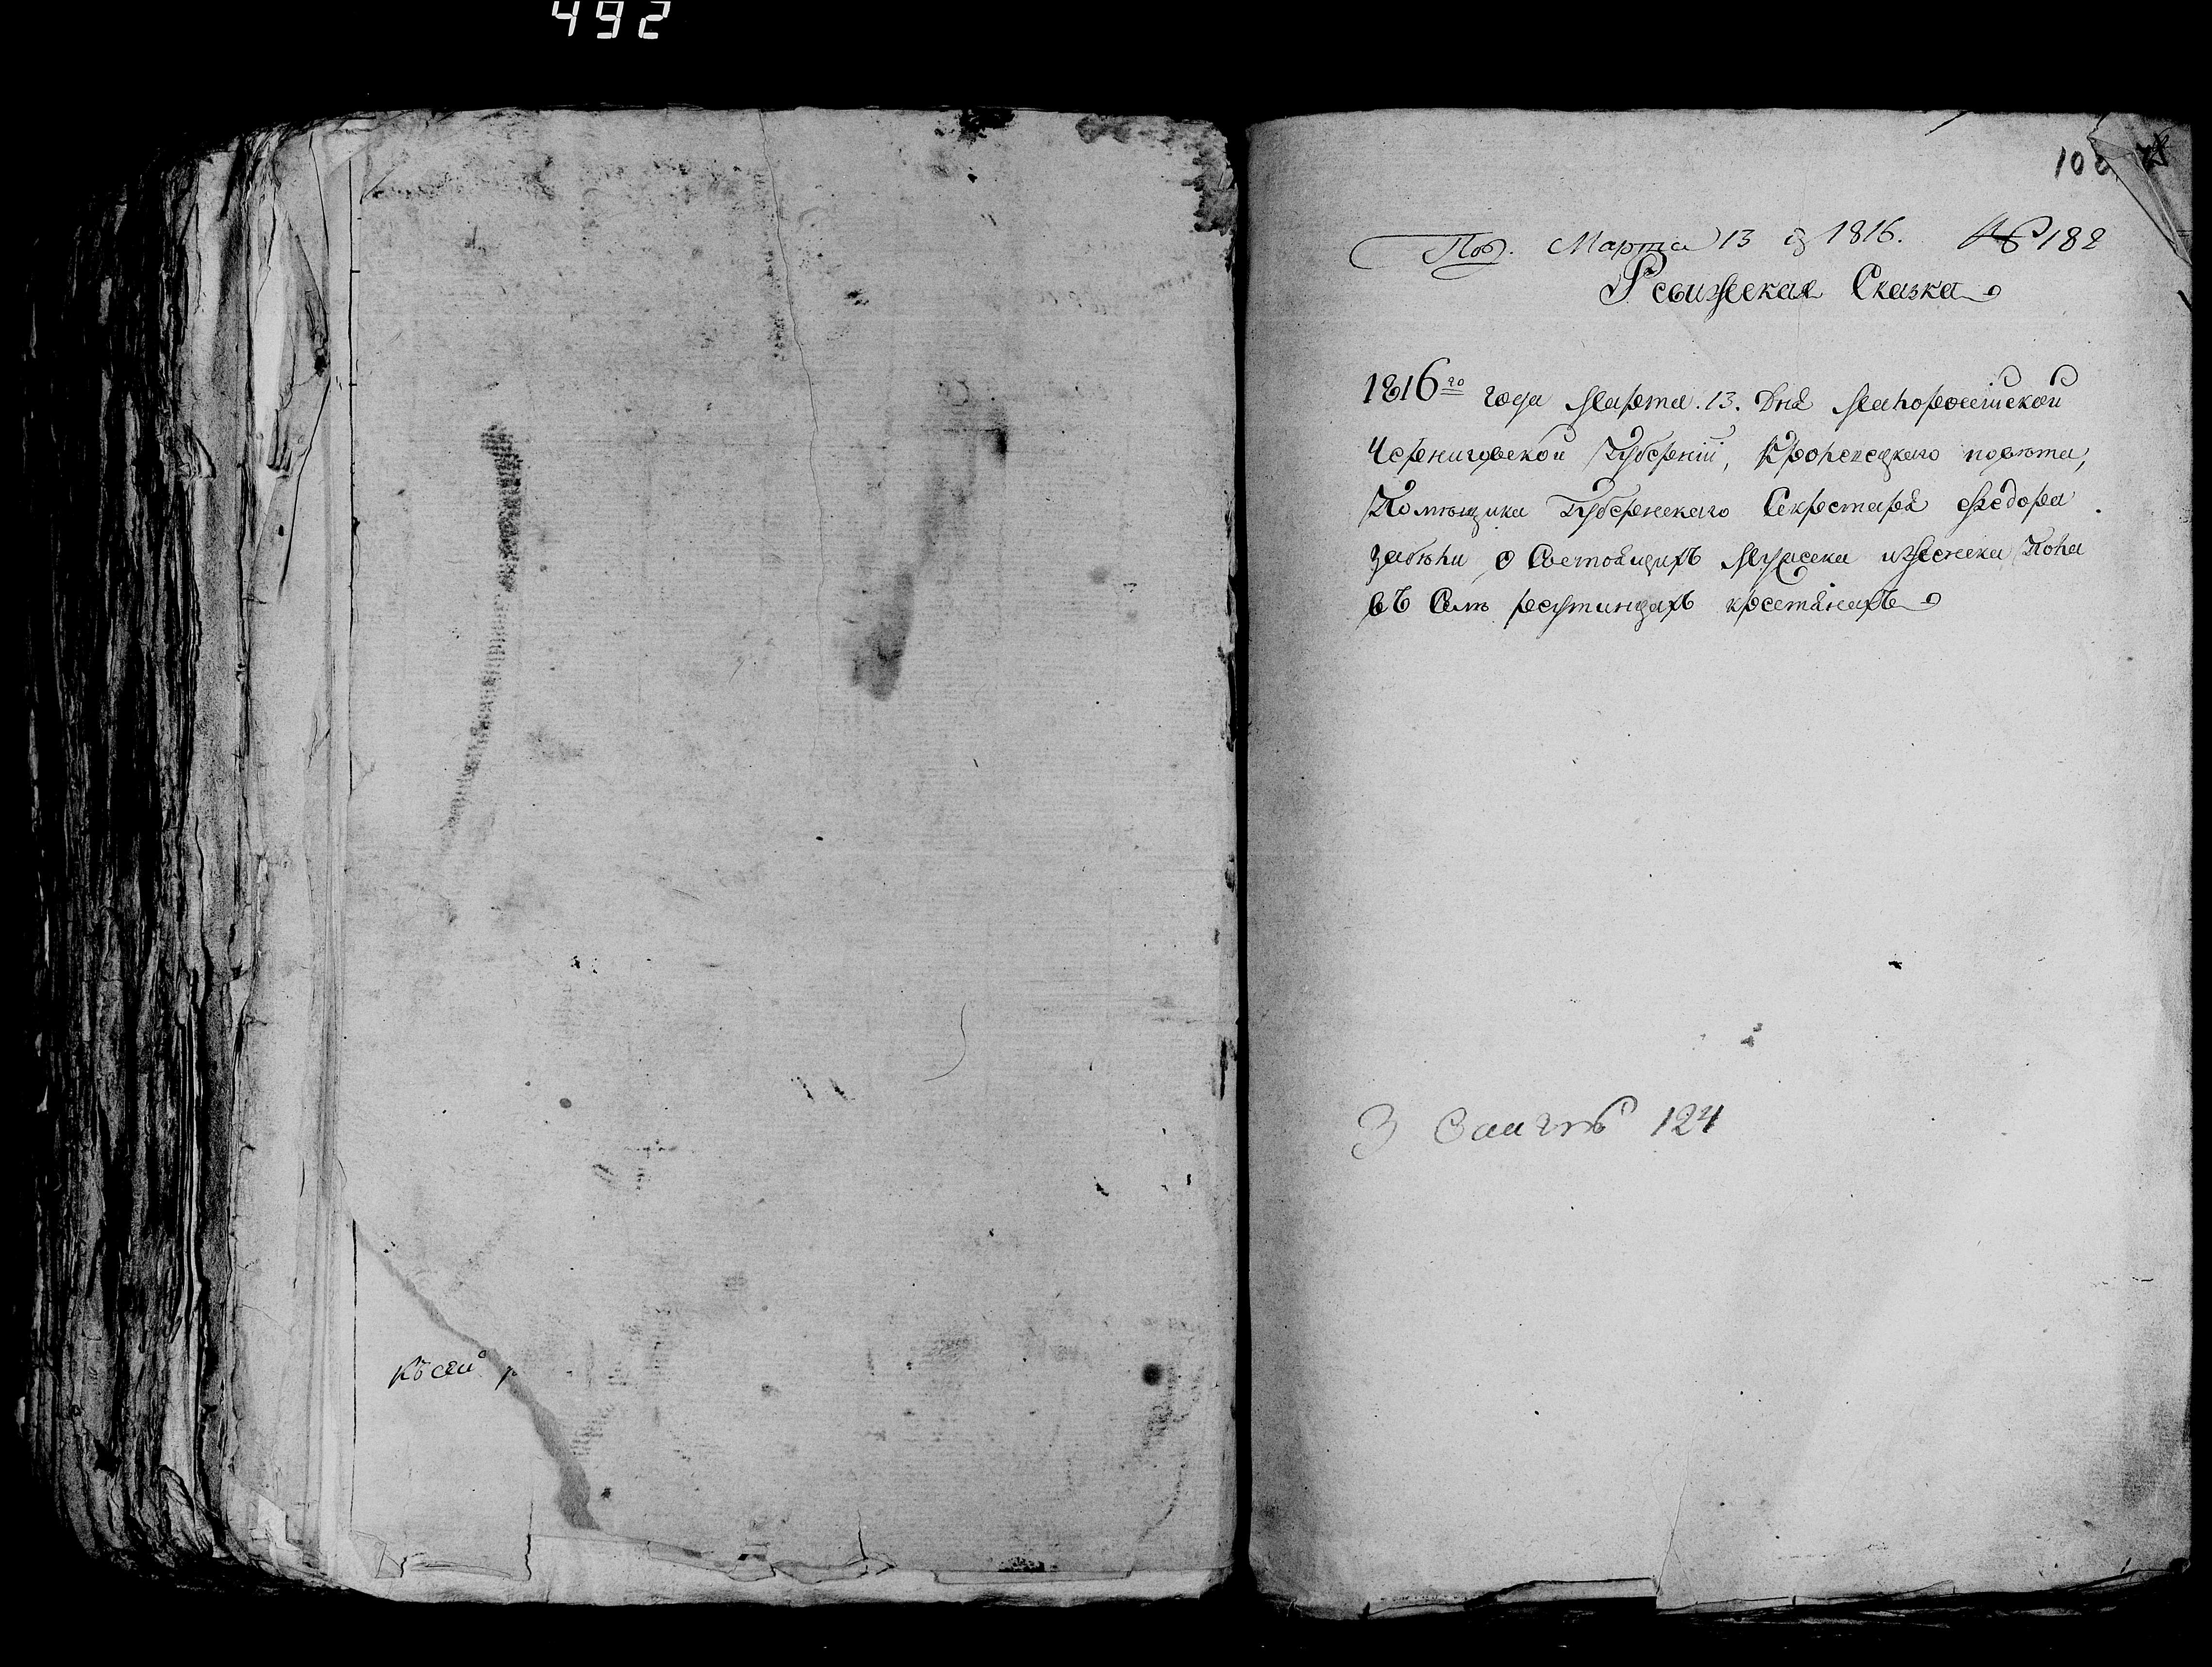 492
Къ сей
108
Под. Марта 13 д 1816. № 182
Ревижская Сказка
1816го года Марта. 13. Дня Малороссiйской
Черниговской Губернiи, Кролевецкаго повѣта,
Помѣщика Губернскаго Секретаря Федора
Забѣлы о Состоящихъ Мужеска иженска Пола
въ Селѣ реутинцахъ крестянахъ
124